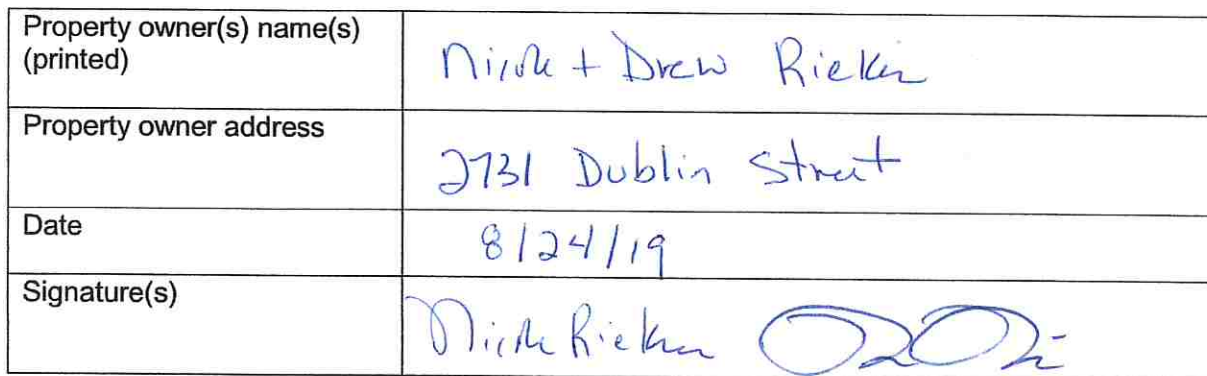 Property owner(s) name(s)
(printed)
Nicole + Drew Rieker
Property owner address
2731 Dublin Street
Date
8/24/19
Signature(s)
Nicole Rieker